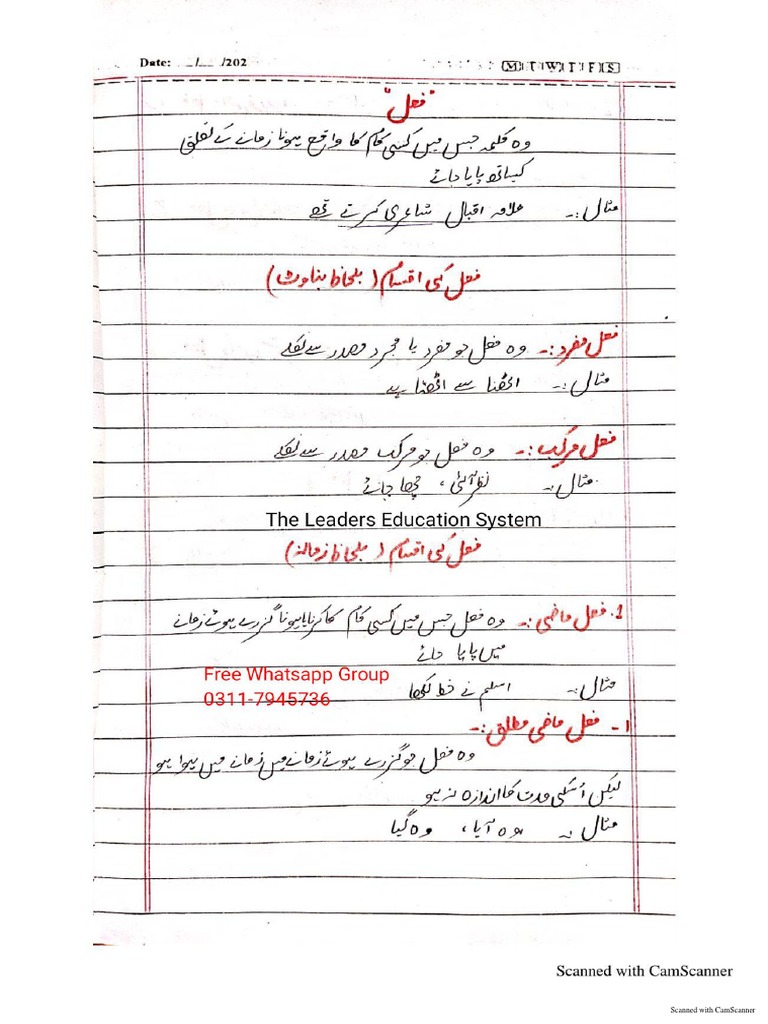 Date: __/__/202
M T W T F S
"فعل"
وہ کلمہ جس میں کسی کام کا واقع ہونا زمانے کے تعلق
کیساتھ پایا جائے
مثال:- علامہ اقبال شاعری کرتے تھے
فعل کی اقسام (بلحاظ بناوٹ)
فعل مفرد:- وہ فعل جو مفرد یا مجرد مصدر سے نکلے
مثال:- اٹھنا سے اٹھتا ہے
فعل مرکب:- وہ فعل جو مرکب مصدر سے نکلے
مثال:- نظر آئی، چھا جائے
The Leaders Education System
فعل کی اقسام (بلحاظ زمانہ)
1. فعل ماضی:- وہ فعل جس میں کسی کام کا کرنا یا ہونا گزرے ہوئے زمانے
میں پایا جائے
Free Whatsapp Group
مثال:- اسلم نے خط لکھا
0311-7945736
۱- فعل ماضی مطلق:-
وہ فعل جو گزرے ہوئے زمانے میں زمانے میں ہوا ہو
لیکن اُسکی مدت کا اندازہ نہ ہو
مثال:- وہ آیا، وہ گیا
Scanned with CamScanner
Scanned with CamScanner